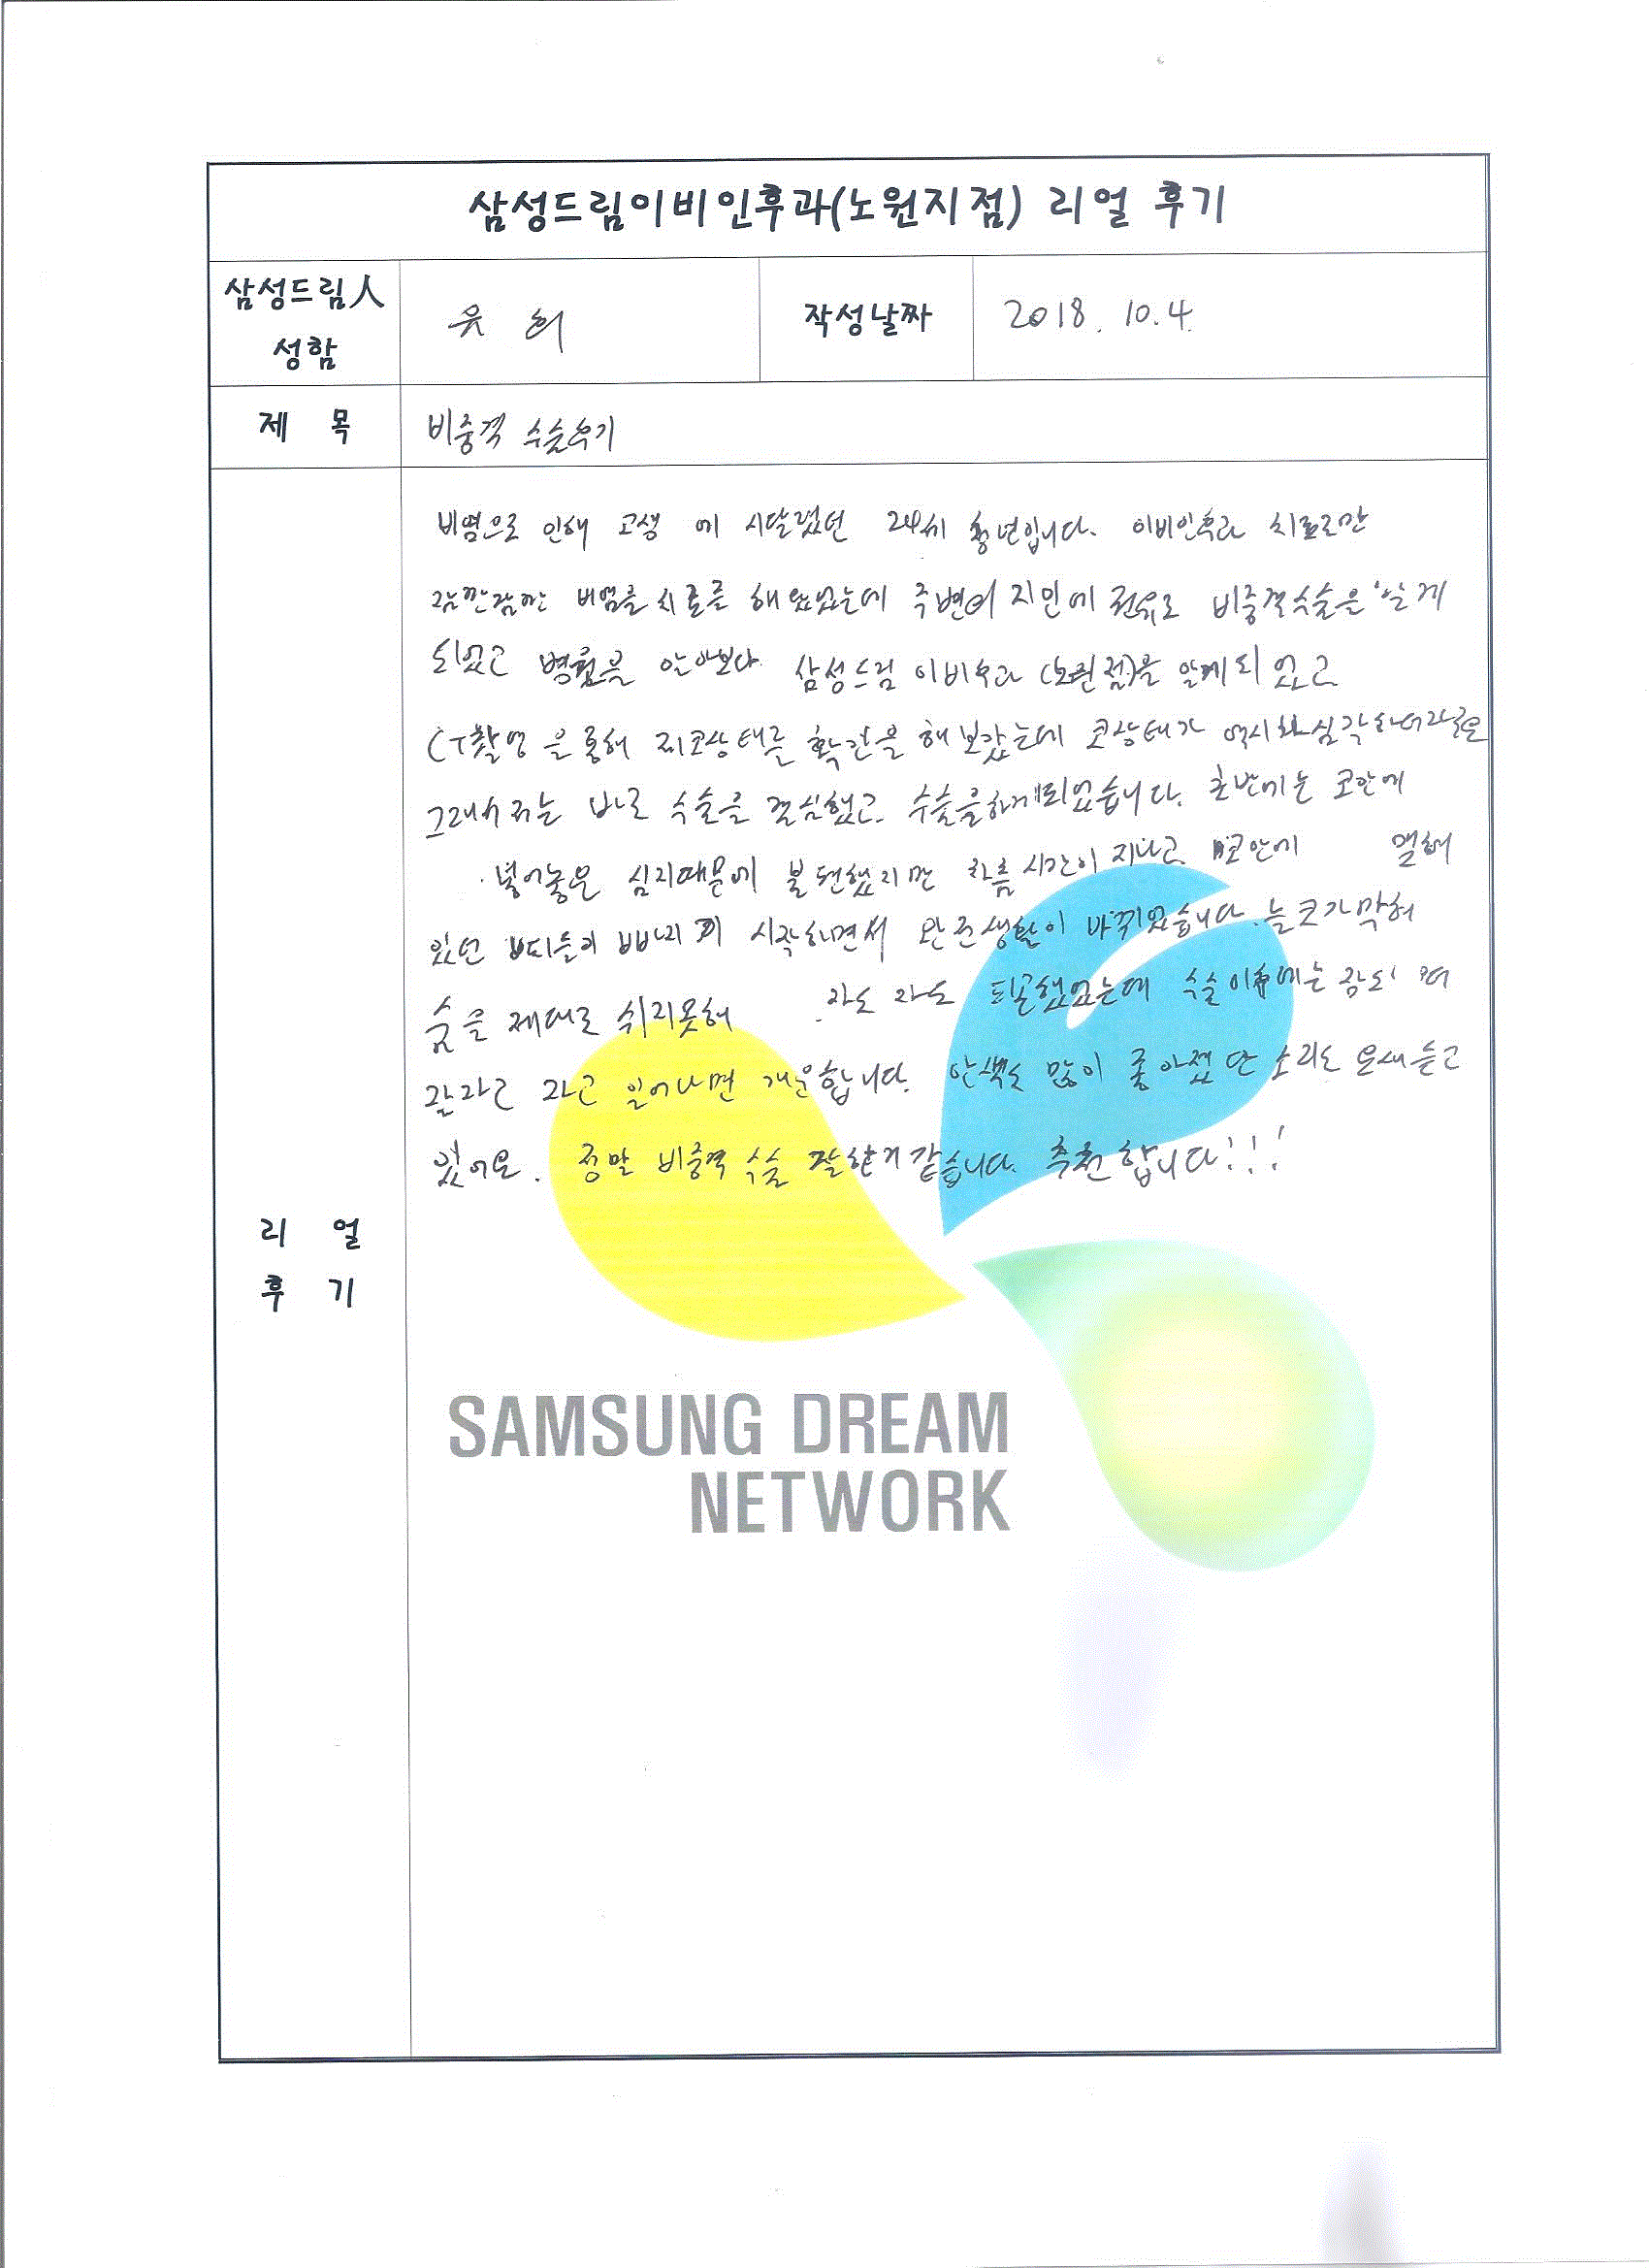 삼성드림이비인후과(노원지점) 리얼 후기
삼성드림人
성함
윤 희
작성날짜
2018. 10. 4.
제 목
비중격 수술후기
비염으로 인해 고생 에 시달렸던 24세 청년입니다. 이비인후과 치료로만
잠깐잠깐 비염을 치료를 해왔었는데 주변에 지인에 권유로 비중격수술은 알게
되었고 병원을 알아보다 삼성드림 이비후과 (노원점)을 알게되었고
CT촬영 을 통해 제코상태를 확인을 해보았는데 코상태가 역시나 심각하더라구요
그래서 저는 바로 수술을 결심했고. 수술을하게되었습니다. 초반에는 코안에
넣어놓은 심지때문에 불편했지만 차츰 시간이 지나고 코안에
있던 시작하면서 완전생활이 바뀌었습니다. 늘 코가막혀
숨을 제대로 쉬지못해 자도 자도 피곤했었는데 수술이후에는 잠도
잘자고 자고 일어나면 개운합니다. 안색도 많이 좋아졌단 소리도 요새듣고
있어요. 정말 비중격 수술 잘한거같습니다. 추천합니다!!!
리 얼
후 기
SAMSUNG DREAM
NETWORK